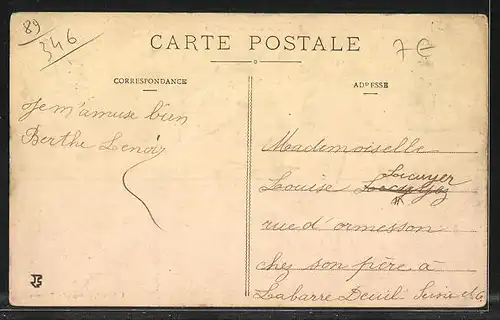 89
346
7€
CARTE POSTALE
CORRESPONDANCE
ADRESSE
Je m'amuse bien
Berthe Lenoir
Mademoiselle
Lecuyer
Louise
rue d'ormesson
chez son père à
Labarre Deuil Seine et O